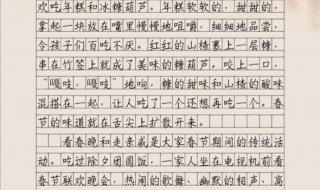 欢吃年糕和冰糖葫芦。年糕软软的，甜甜的，
拿起一块放在嘴里慢慢地咀嚼，细细地品尝，
令孩子们百吃不厌。红红的山楂裹上一层糖，
串在竹签上就成了美味的糖葫芦。咬上一口，
“嘎吱，嘎吱”地响，糖的甜味和山楂的酸味
混搭在一起，让人吃了一个还想再吃一个。春
节的味道就在舌尖上扩散开来。
看春晚和走亲戚是大家春节期间的传统活
动。吃过除夕团圆饭，一家人坐在电视机前看
春节联欢晚会，热闹的歌舞、幽默的相声、高